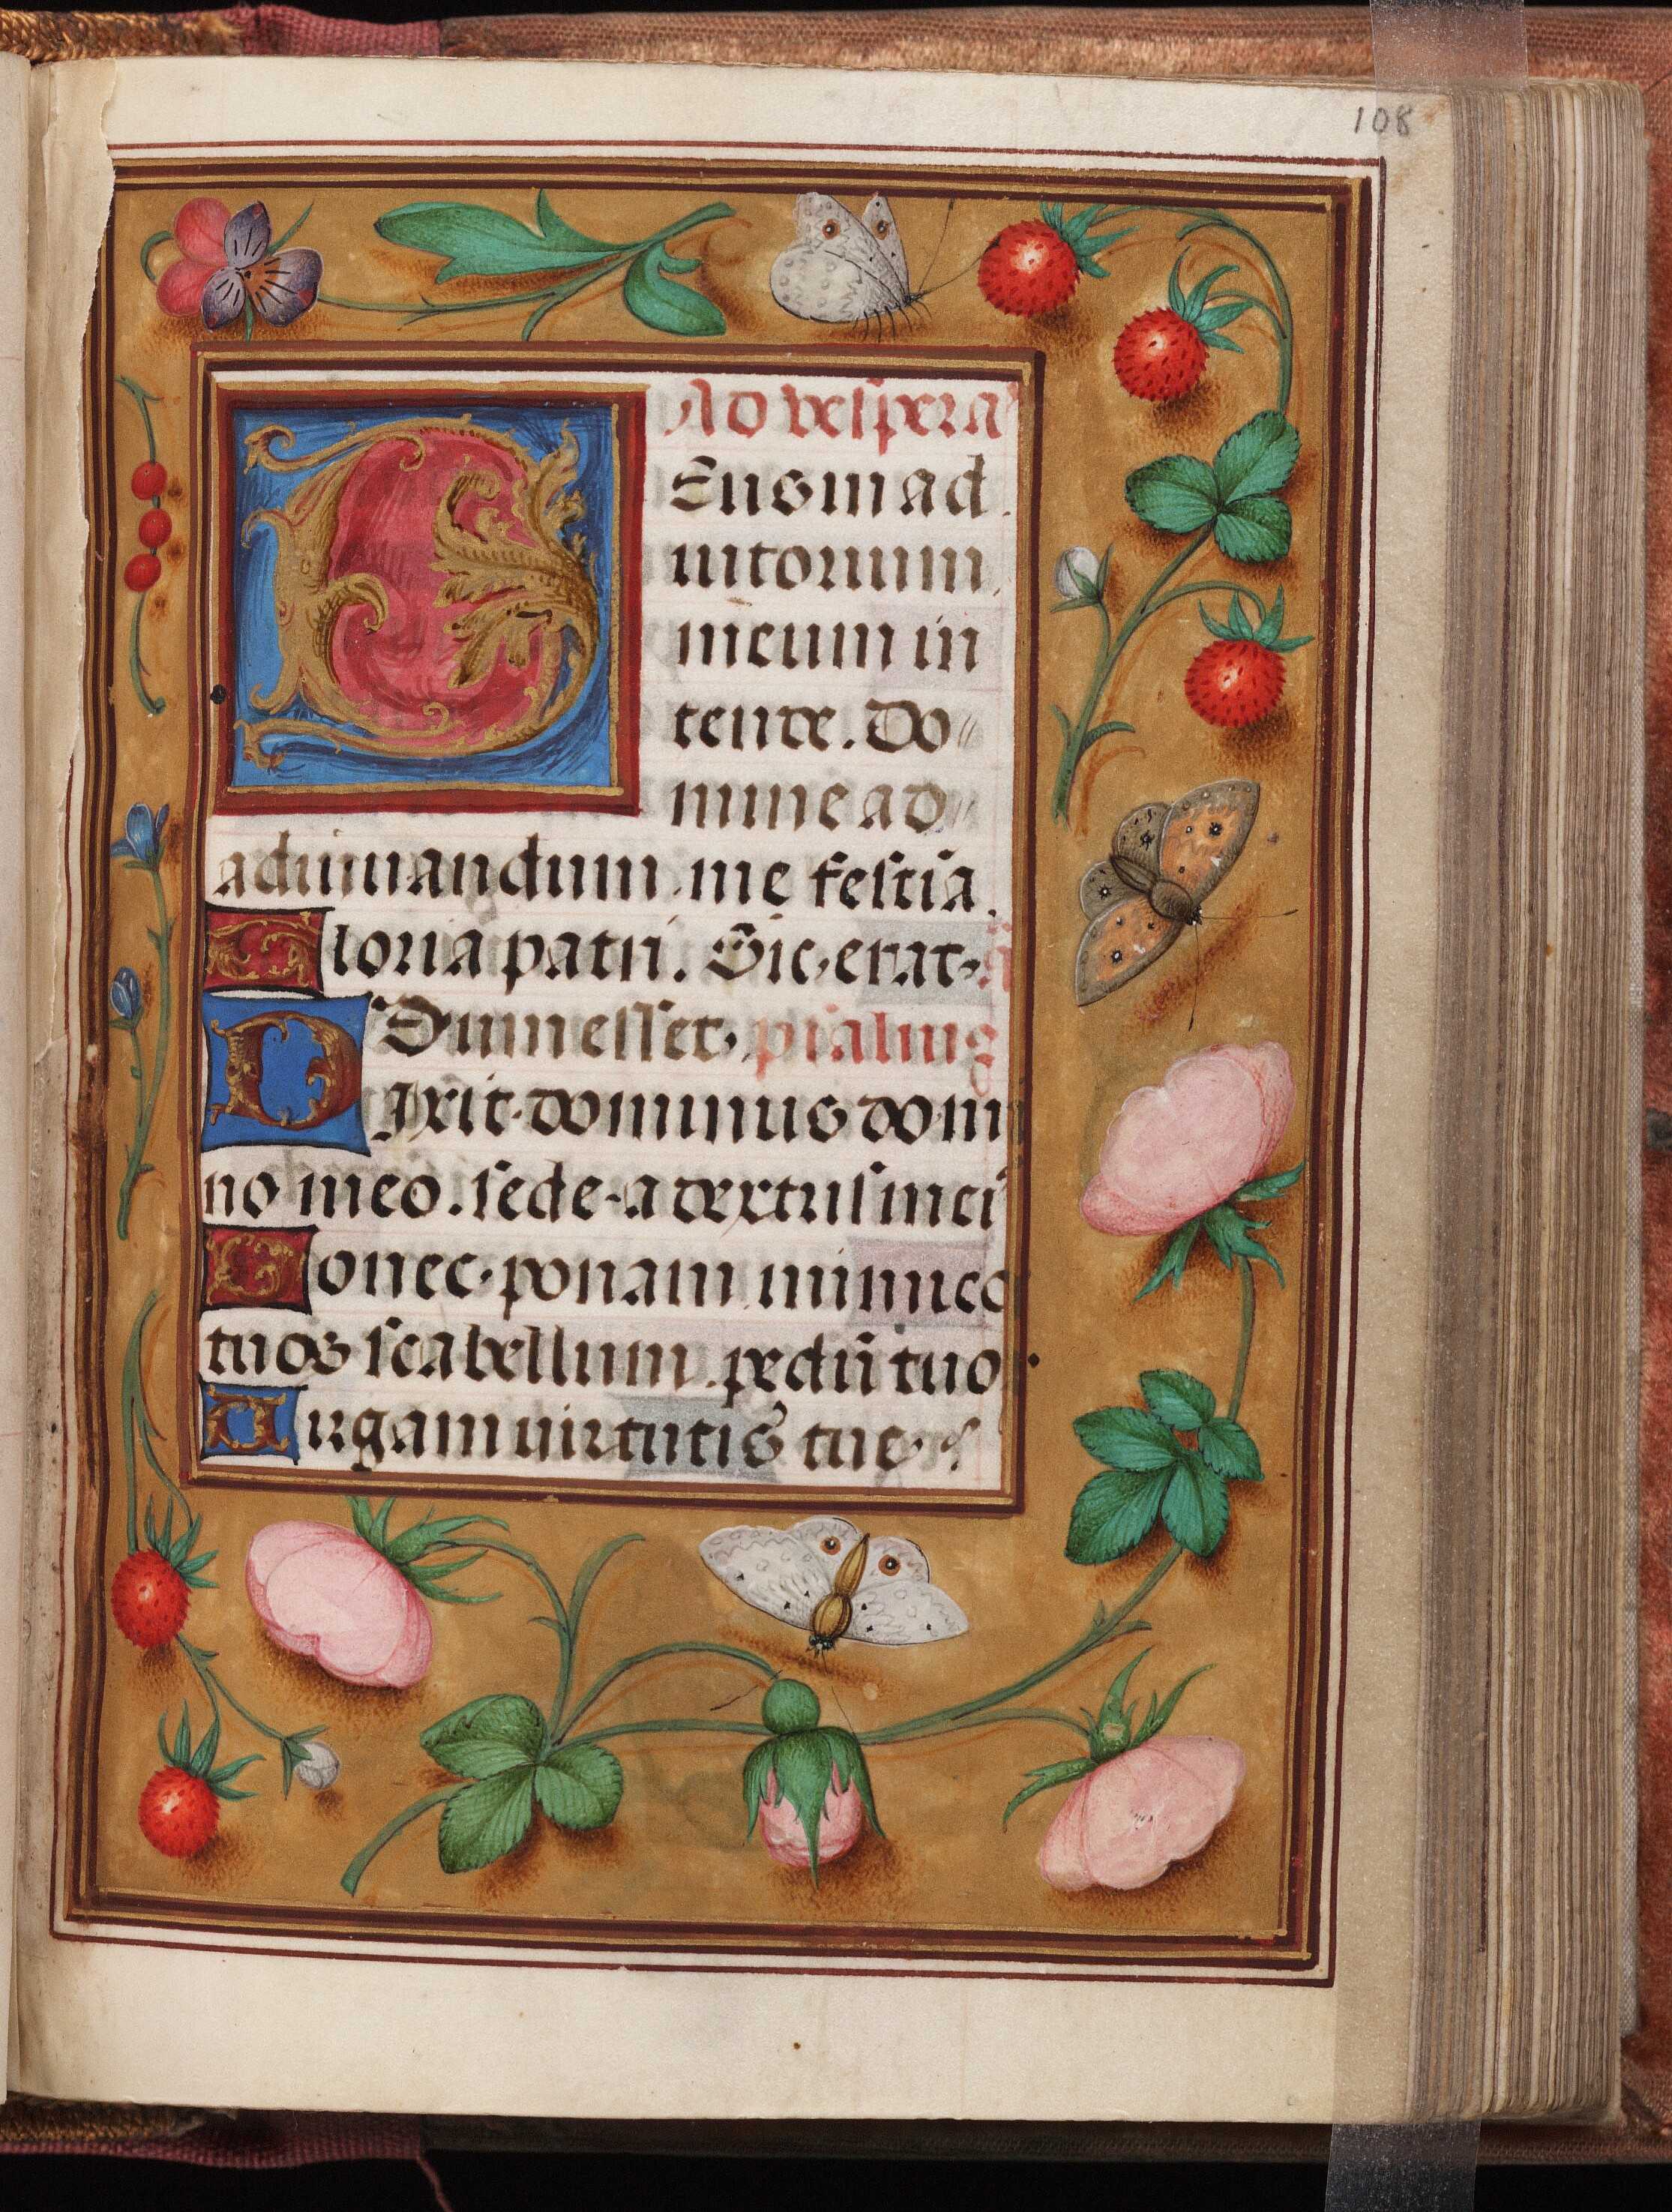 108
Ad vespera
Deus in ad
iutorium
meum in
tende. Do
mine ad
adiuuandum me festia
Gloria patri. Sic erat. a
Dum esset. psalmus
Dixit dominus domi
no meo. sede a dextris mei
Donec ponam inimico
tuos scabellum pedū tuo
Uirgam uirtutis tue